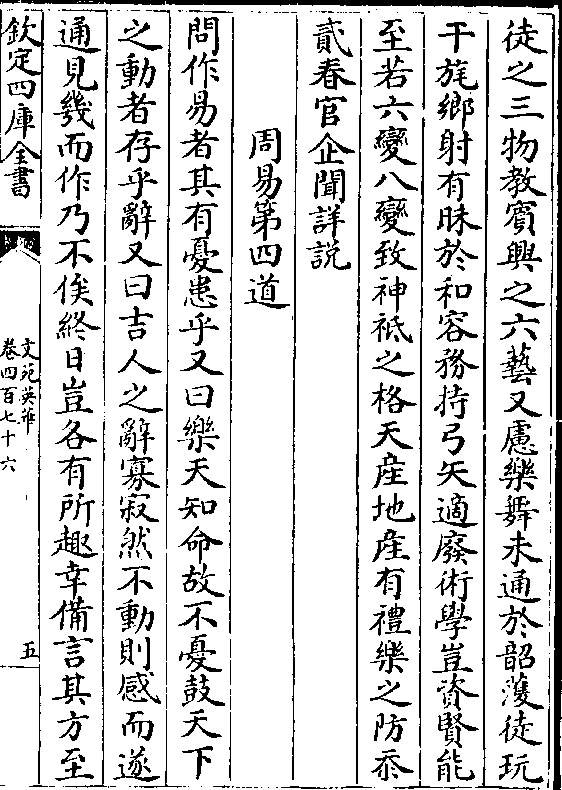 徒之三物教賔興之六藝又慮樂舞未通於韶濩徒玩
干旄鄉射有昧於和容務持弓矢適廢術學豈資賢能
至若六變八變致神祗之格天産地産有禮樂之防忝
貳春官企聞詳説
周易第四道
問作易者其有憂患乎又曰樂天知命故不憂鼓天下
之動者存乎辭又曰吉人之辭寡寂然不動則感而遂
通見幾而作乃不俟終日豈各有所趣幸備言其方至
欽定四庫全書
文苑英華
卷四百七十六
五